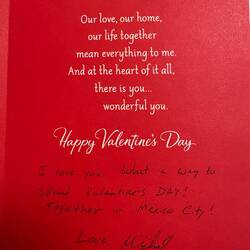 Our love, our home,
our life together
mean everything to me.
And at the heart of it all,
there is you...
wonderful you.
Happy Valentine's Day
I love you. What a way to
Spend Valentine's DAY!
Together in Mexico City!
Love,